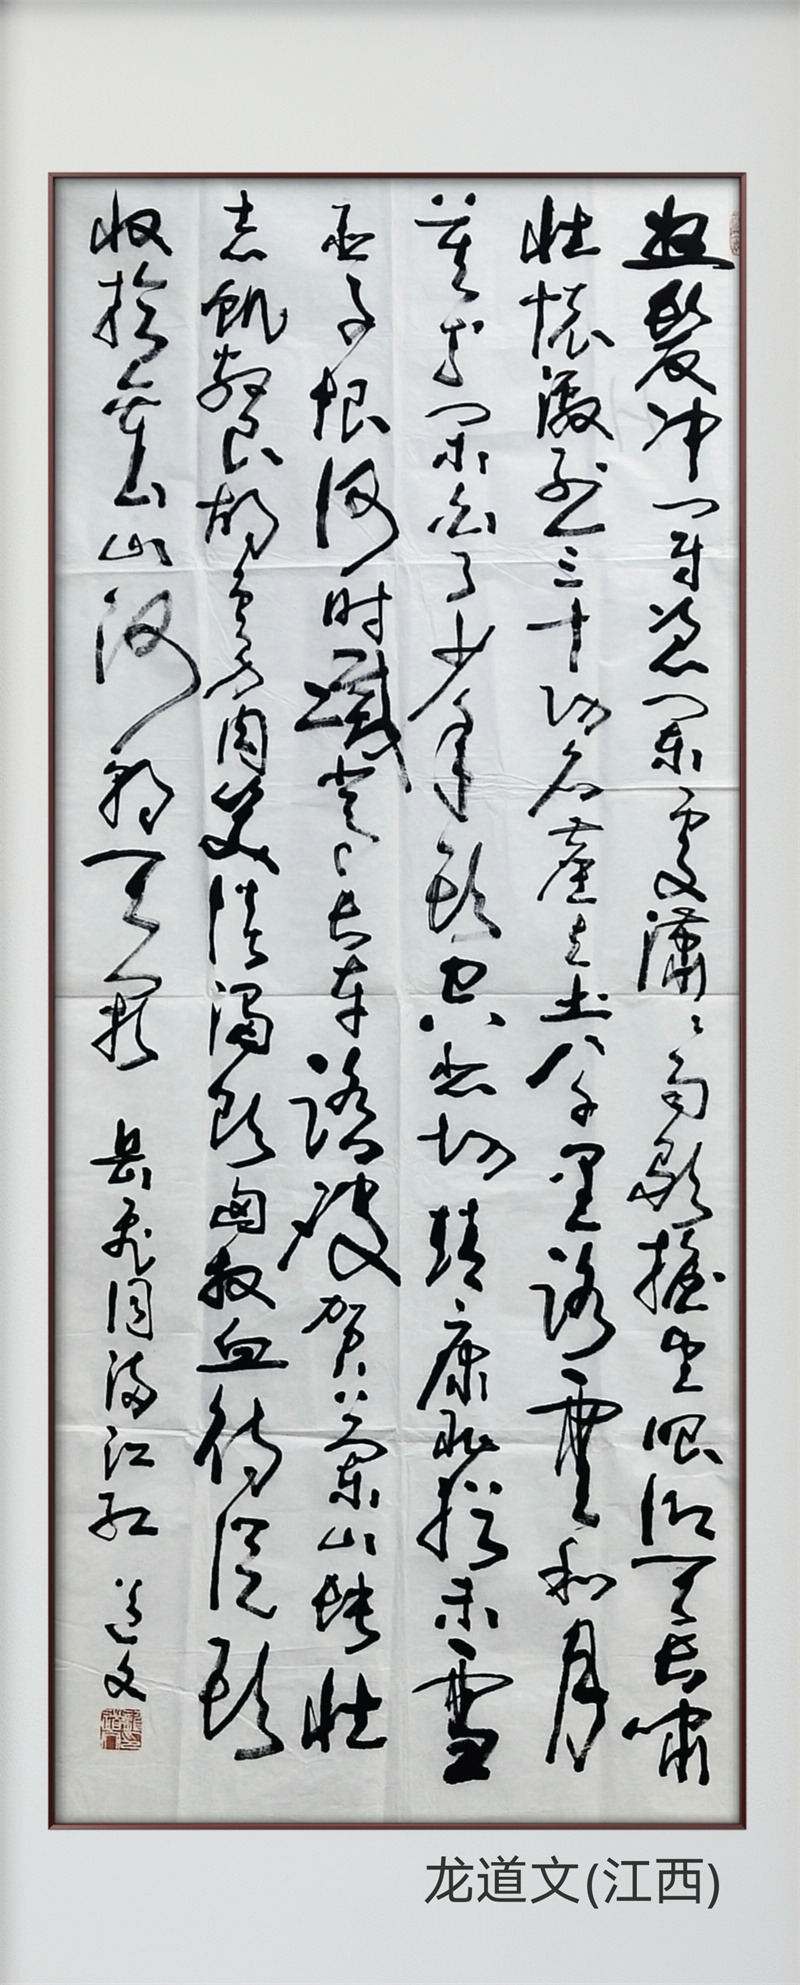 怒髮冲冠凭阑处潇〻雨歇抬望眼仰天长啸
壮怀激烈三十功名塵与土八千里路雲和月
莫等闲白了少年头空悲切靖康耻犹未雪
臣子恨何时滅驾长车踏破贺兰山缺壮
志飢餐胡虏肉笑谈渴饮匈奴血待從头
收拾旧山河朝天阙 岳飞词满江红 道文
龙道文(江西)